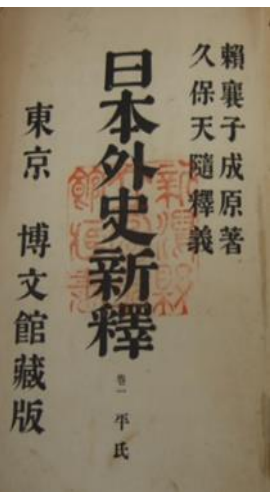 賴襄子成原著
久保天隨釋義
日本外史新釋
卷一 平氏
東京 博文館藏版